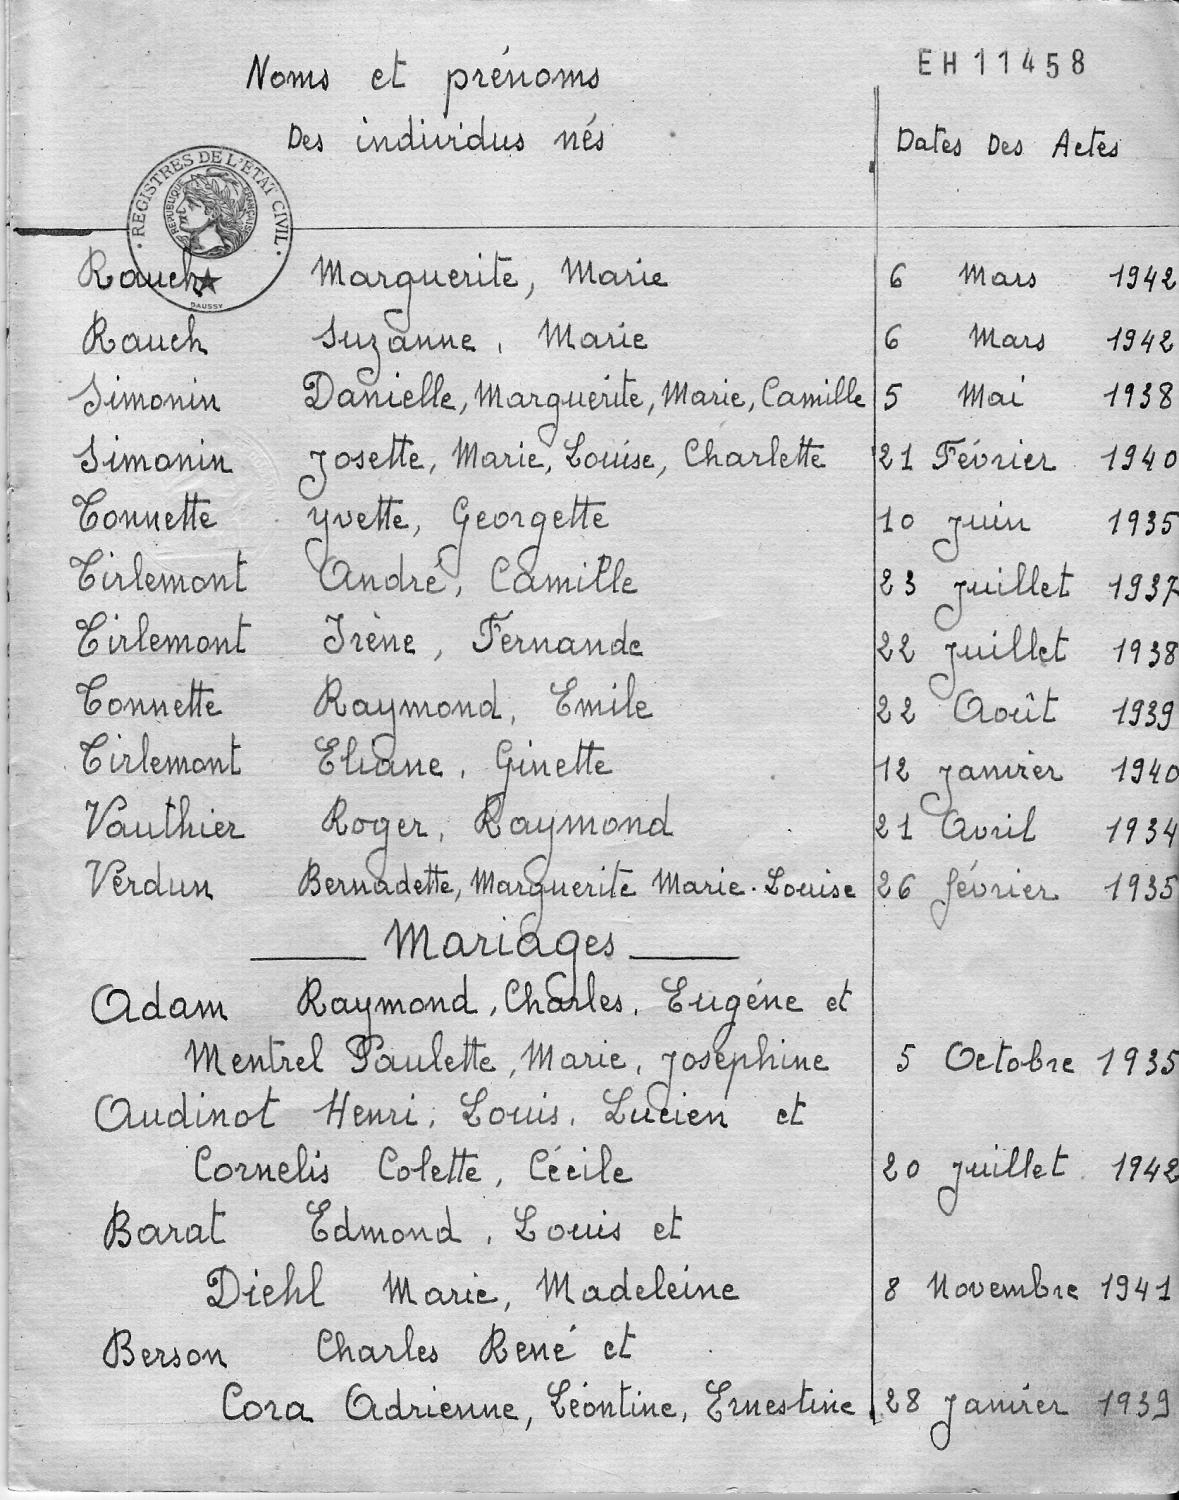 EH11458
Noms et prénoms
Des individus nés
Dates Des Actes
REGISTRES DE L'ETAT CIVIL
REPUBLIQUE FRANÇAISE
DAUSSY
Rauch Marguerite, Marie 6 Mars 1942
Rauch Suzanne, Marie 6 Mars 1942
Simonin Danielle, Marguerite, Marie, Camille 5 Mai 1938
Simonin Josette, Marie, Louise, Charlette 21 Février 1940
Tonnette Yvette, Georgette 10 juin 1935
Tirlemont André, Camille 23 juillet 1937
Tirlemont Irène, Fernande 22 juillet 1938
Tonnette Raymond, Emile 22 Août 1939
Tirlemont Eliane, Ginette 12 janvier 1940
Vauthier Roger, Raymond 21 Avril 1934
Verdun Bernadette, Marguerite Marie-Louise 26 février 1935
Mariages
Adam Raymond, Charles, Eugéne et
Mentrel Paulette, Marie, Joséphine 5 Octobre 1935
Audinot Henri, Louis, Lucien et
Cornelis Colette, Cécile 20 juillet 1942
Barat Edmond, Louis et
Diehl Marie, Madeleine 8 Novembre 1941
Berson Charles René et
Cora Adrienne, Léontine, Ernestine 28 janvier 1939